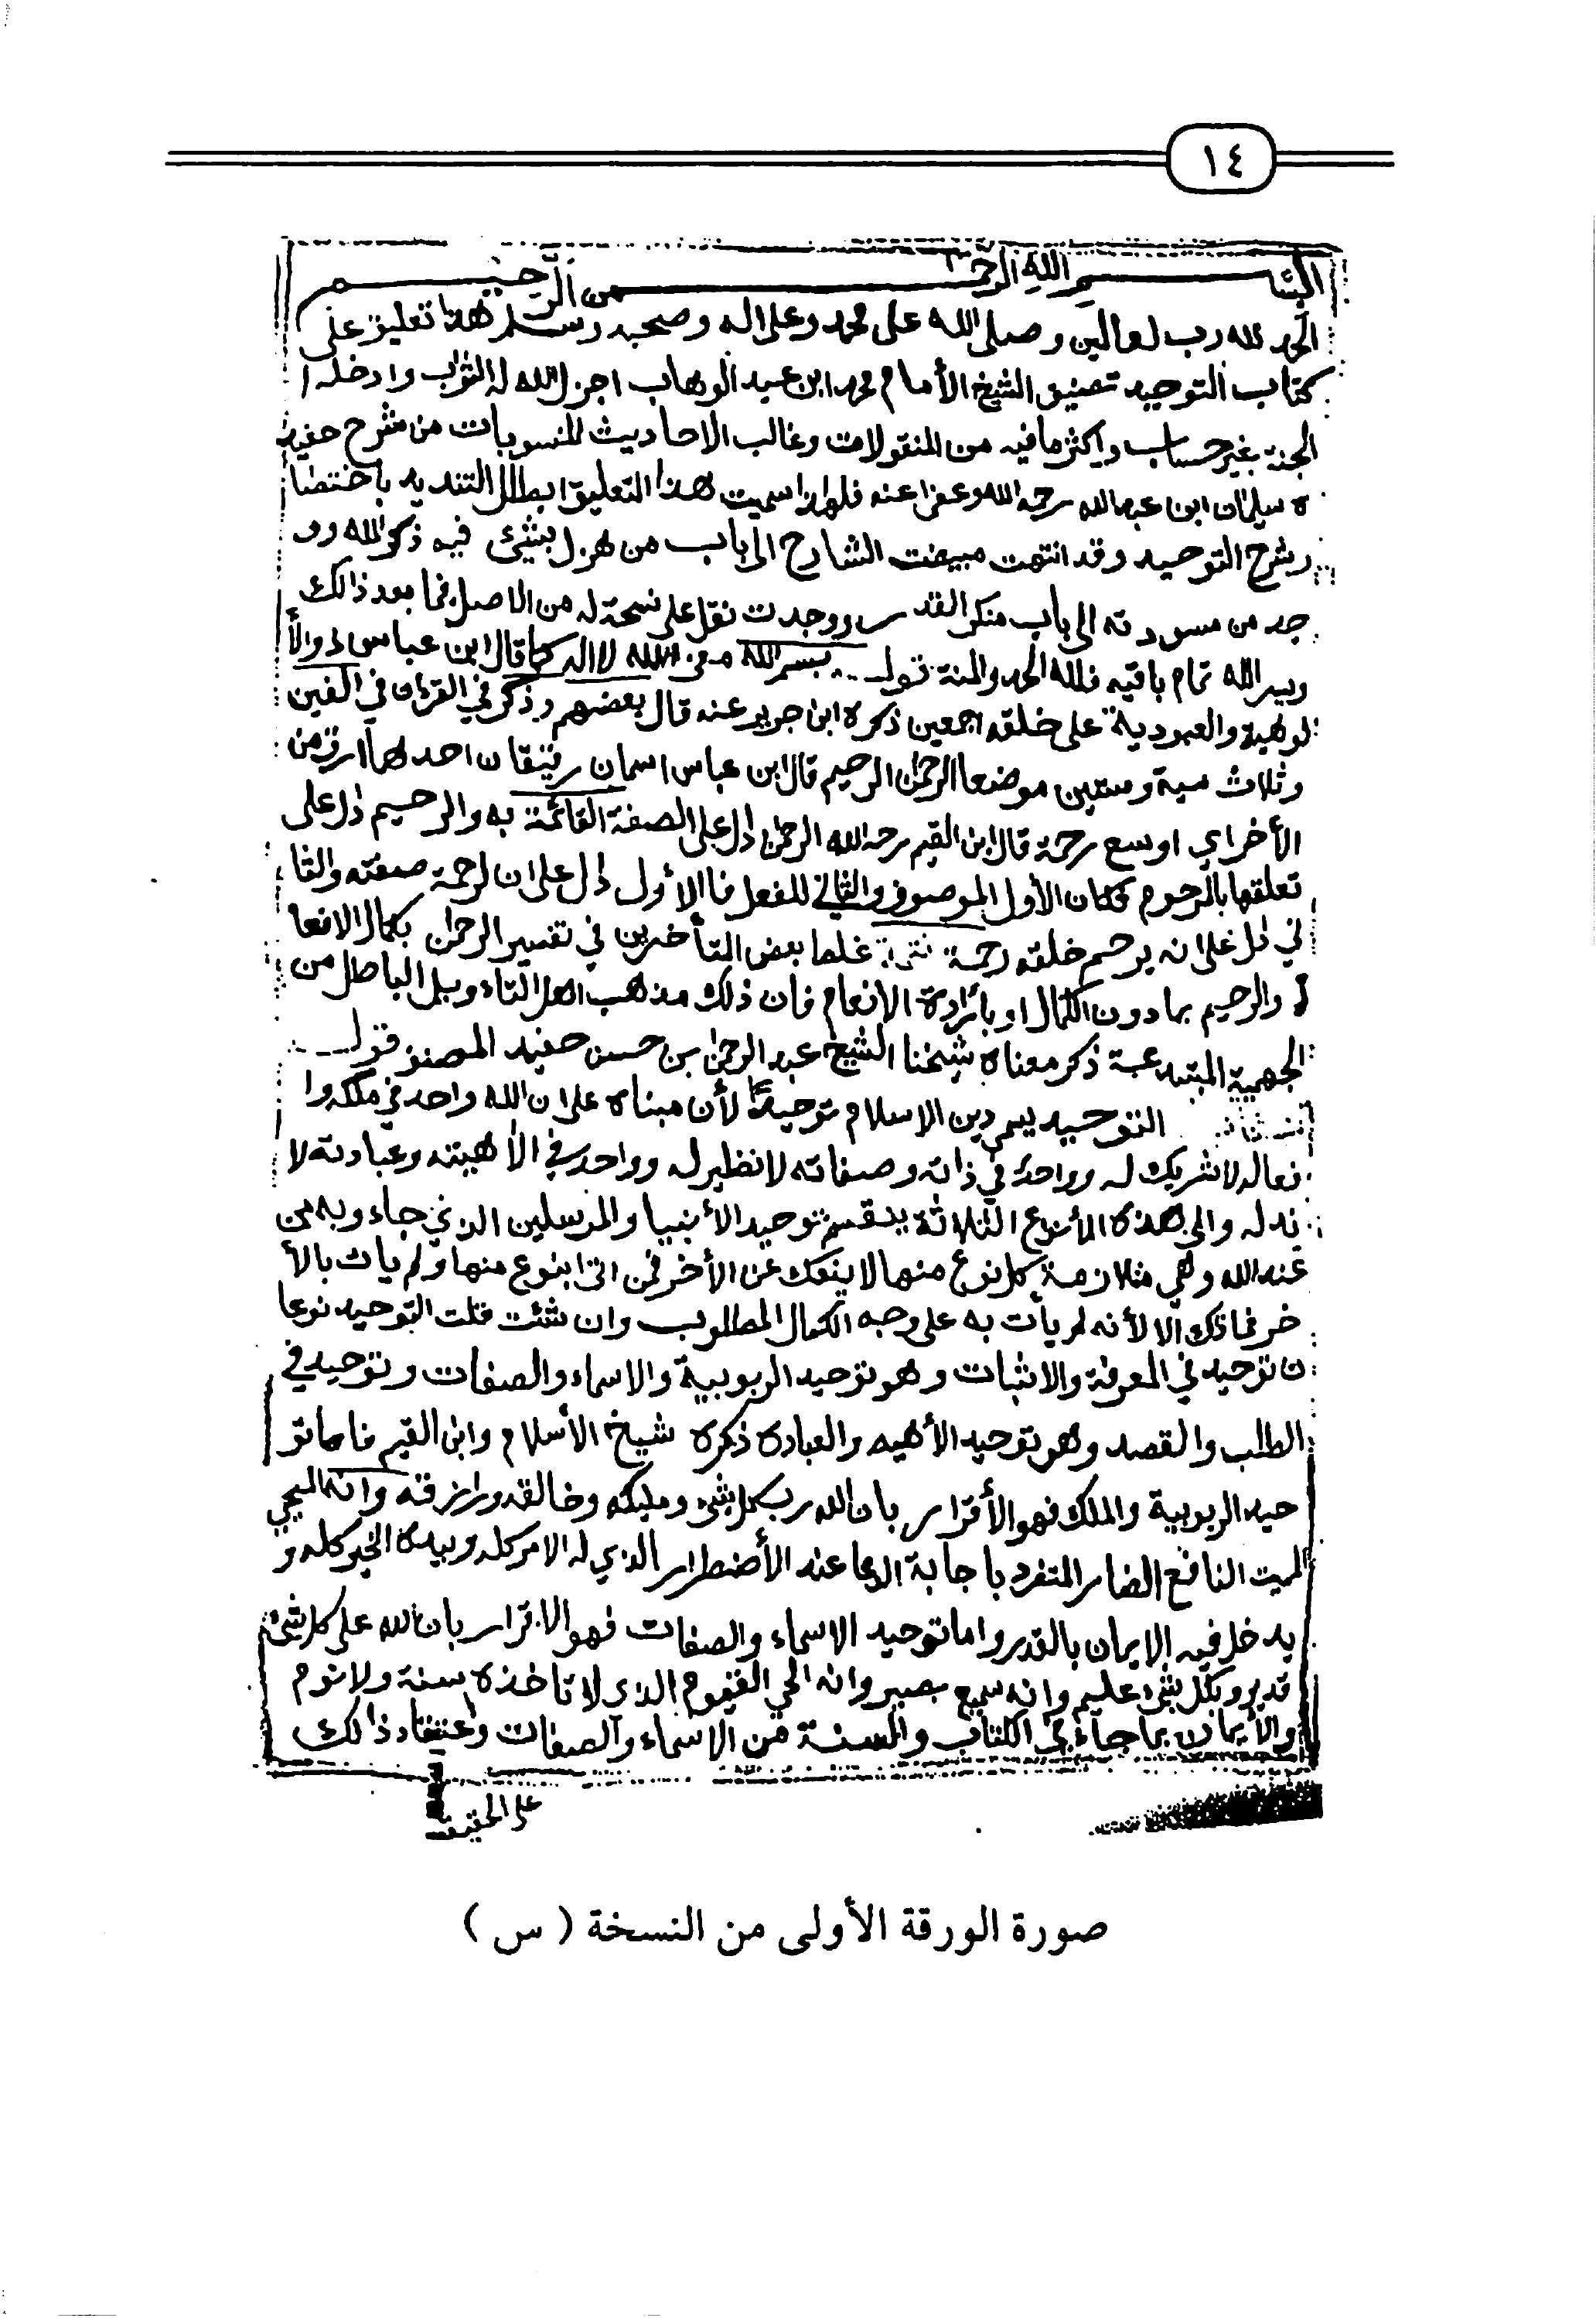 ١٤
بسم الله الرحمن الرحيم
الحمد لله رب لعالمين وصلى الله على محمد وعلى اله وصحبه وسلم هذا تعليق على
كتاب التوحيد تصنيف الشيخ الأمام محمد ابن عبد الوهاب اجزل الله له الثواب وادخله ا
لجنة بغير حساب واكثر ما فيه من المنقولات وغالب الاحاديث المنسوبات من شرح حفيد
ه سليمان ابن عبد الله رحمه الله وعفى عنه فلهذا سميت هذا التعليق ابطال التنديد باختصا
ر شرح التوحيد وقد انتهت مبيضت الشارح الى باب من هزل بشيئ فيه ذكر الله وو
جد من مسودته الى باب منكر القد ر ووجدت نقل على نسخة له من الاصل فما بعد ذالك
ويسر الله تمام باقيه فلله الحمد والمنة قولـه بسم الله معنى الله لا اله كما قال ابن عباس ذوالأ
لوهية والعبودية على خلقه اجمعين ذكره ابن جرير عنه قال بعضهم وذكر في القرءان في الفين
وثلاث مية وستين موضعا الرحمن الرحيم قال ابن عباس اسمان رقيقان احدهما ارق من
الأخر اي اوسع رحمة قال ابن القيم رحمه الله الرحمن دل على الصفة القائمة به والرحيم دل على
تعلقها بالمرحوم فكان الأول الموصوف والثاني للفعل فاالأول دل على ان لرحمة صفته والثا
ني دل على انه يرحم خلقه رحمة غلما بعض المتأخرين في تفسير الرحمن بكمال الانعا
م والرحيم بما دون الكمال او بارادة الانعام فان ذلك مذهب اهل التاءويل الباطل من
الجهمية المبتدعة ذكر معناه شيخنا الشيخ عبد الرحمن بن حسن حفيد المصنف قولـه
التوحيد يسمى دين الاسلام توحيدًا لأن مبناه على ان الله واحد في ملكه وا
فعاله لا شريك له وواحد في ذاته وصفاته لا نظير له وواحد في الألهيته وعبادته لا
ند له والى هذه الأنواع الثلاثة ينقسم توحيد الأنبيا والمرسلين الذي جاءو به من
عند الله وهي متلازمة كل نوع منها لا ينفك عن الأخر فمن اتى بنوع منها ولم يات بالأ
خر فما ذلك الا لأنه لم يأت به على وجه الكمال المطلوب وان شئت قلت التوحيد نوعا
ن توحيد في المعرفة والاثبات وهو توحيد الربوبية والاسماء والصفات وتوحيد في
الطلب والقصد وهو توحيد الألهيه والعبادة ذكره شيخ الأسلام وابن القيم فاما تو
حيد الربوبية والملك فهو الأقرار بان الله رب كل شيئ ومليكه وخالقه ورازقه وانه المحيي
المميت النافع الضار المتفرد باجابة الدعا عند الأضطرار الذي له الامر كله وبيده الخير كله و
يدخل فيه الايمان بالقدر واما توحيد الاسماء والصفات فهو الاقرار بان الله على كل شيئ
قدير وبكل شيئ عليم وانه سميع بصير وانه الحي القيوم الذي لا تاخذه سنة ولا نوم
والأيمان بما جاء في الكتاب والسنة من الاسماء والصفات واعتقاد ذالك
على الحقيقة
صورة الورقة الأولى من النسخة ( س )